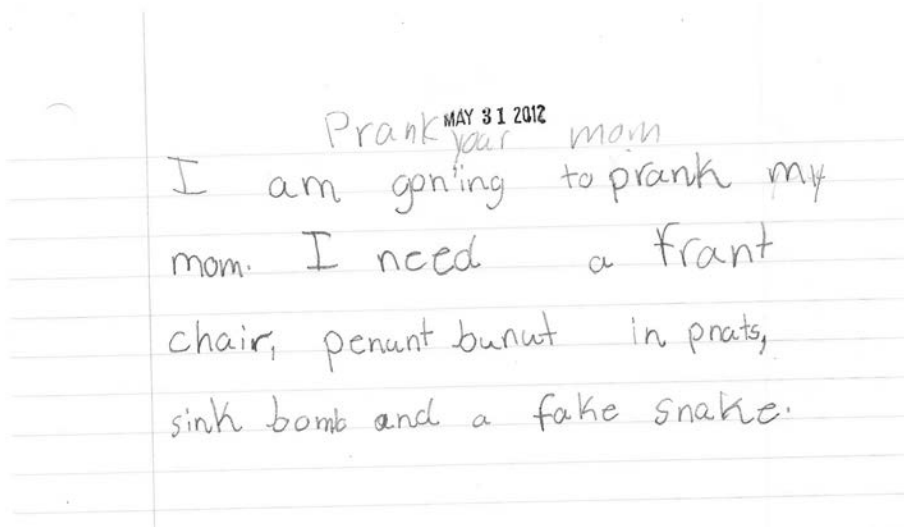 MAY 31 2012
Prank your mom
I am gon'ing to prank my
mom. I need a frant
chair, penunt bunut in pnats,
sink bomb and a fake snake.